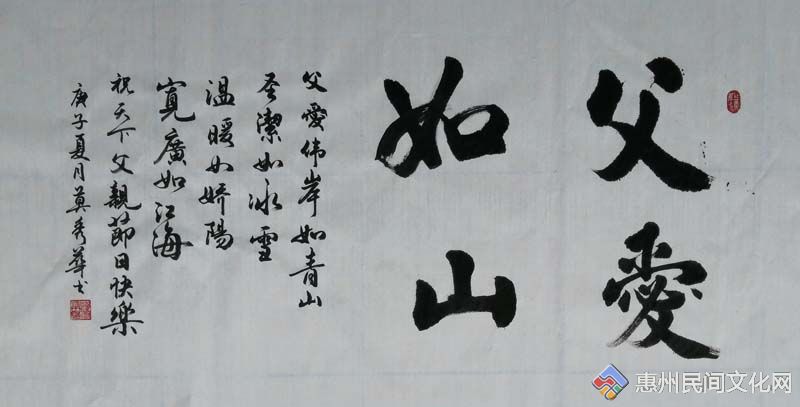 父愛
如山
父愛伟岸如青山
圣潔如冰雪
温暖如娇陽
寛廣如江海
祝天下父親節日快樂
庚子夏月莫秀華书
惠州民间文化网